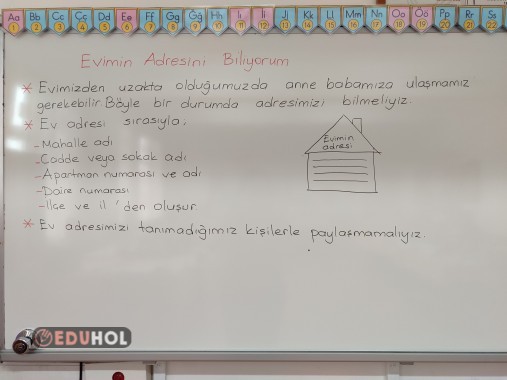 Aa Bb Cc Çç Dd Ee Ff Gg Ğğ Hh Iı İi Jj Kk Ll Mm Nn Oo Öö Pp Rr Ss
1 2 3 4 5 6 7 8 9 10 11 12 13 14 15 16 17 18 19 20 21 22
Evimin Adresini Biliyorum
* Evimizden uzakta olduğumuzda anne babamıza ulaşmamız
gerekebilir. Böyle bir durumda adresimizi bilmeliyiz.
* Ev adresi sırasıyla;
- Mahalle adı
- Cadde veya sokak adı
- Apartman numarası ve adı
- Daire numarası
- İlçe ve il 'den oluşur.
Evimin
adresi
* Ev adresimizi tanımadığımız kişilerle paylaşmamalıyız.
EDUHOL